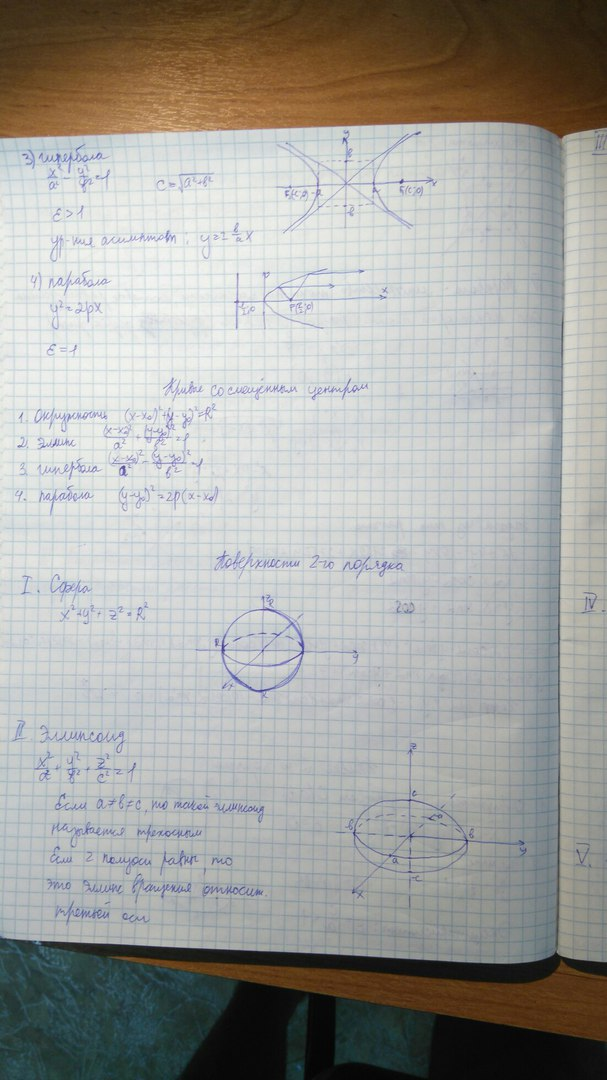 3) гипербола
x²/a² - y²/b² = 1
c = √(a²+b²)
ε > 1
ур-ния асимптоты: y = ± b/a x
y
b
-a
a
x
-b
4) парабола
y² = 2px
x
ε = 1
Кривые со смещённым центром
1. Окружность (x-x₀)² + (y-y₀)² = R²
2. Эллипс (x-x₀)²/a² + (y-y₀)²/b² = 1
3. гипербола (x-x₀)²/a² - (y-y₀)²/b² = 1
4. парабола (y-y₀)² = 2p(x-x₀)
Поверхности 2-го порядка
I. Сфера
x² + y² + z² = R²
z
R
R
y
x
II. Эллипсоид
x²/a² + y²/b² + z²/c² = 1
Если a≠b≠c, то такой эллипсоид
называется трехосным
Если 2 полуоси равны, то
это эллипс вращения относит.
третьей оси
z
c
-b
b
y
a
-c
x
III
IV.
V.